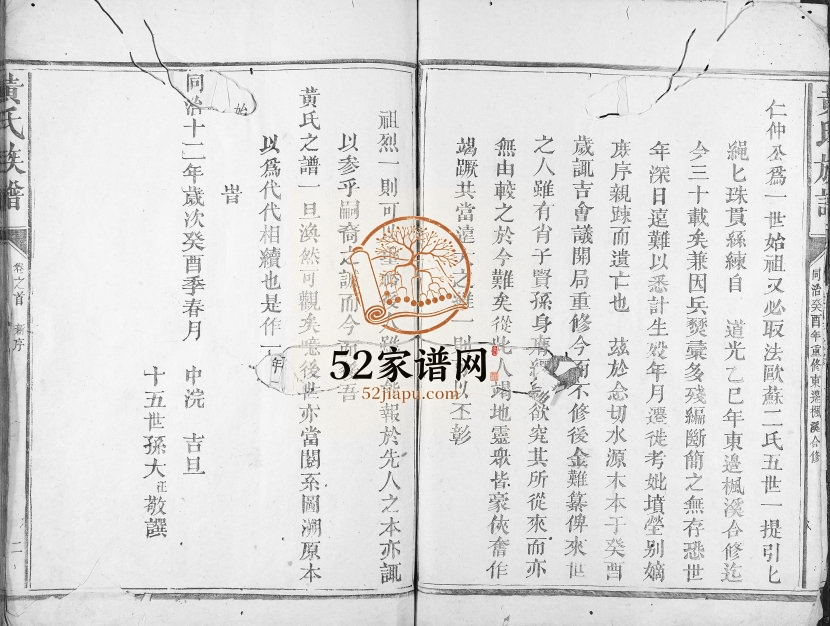 仁仲公為一世始祖又必取法歐蘇二氏五世一提引七
繩七珠貫絲練自 道光乙巳年東邉楓溪合修迄
今三十載矣兼因兵燹彙多殘編斷簡之無存恐世
年深日遠難以悉計生殁年月遷徙考妣墳塋别嫡
庶序親踈而遺亡也 茲於念切水源木本于癸酉
歲諏吉會議開局重修今而不修後僉難纂俾來世
之人雖有肖子賢孫身 欲究其所從來而亦
無由較之於今難矣從此人 地靈衆皆豪俠奮作
竭蹶共當 之 一則 以丕彰
祖烈一則可 報於先人之本亦諏
以参乎嗣裔之 而今而 吾
黃氏之譜一旦渙然可觀矣噫後世亦當閱系圖溯原本
以爲代代相續也是作
始
年
旹
同治十二年歲次癸酉季春月 中浣 吉旦
十五世孫大汪敬譔
黃氏族譜
卷之首 新序
二
同治癸酉年重修東邉楓溪合修
52家谱网
52jiapu.com